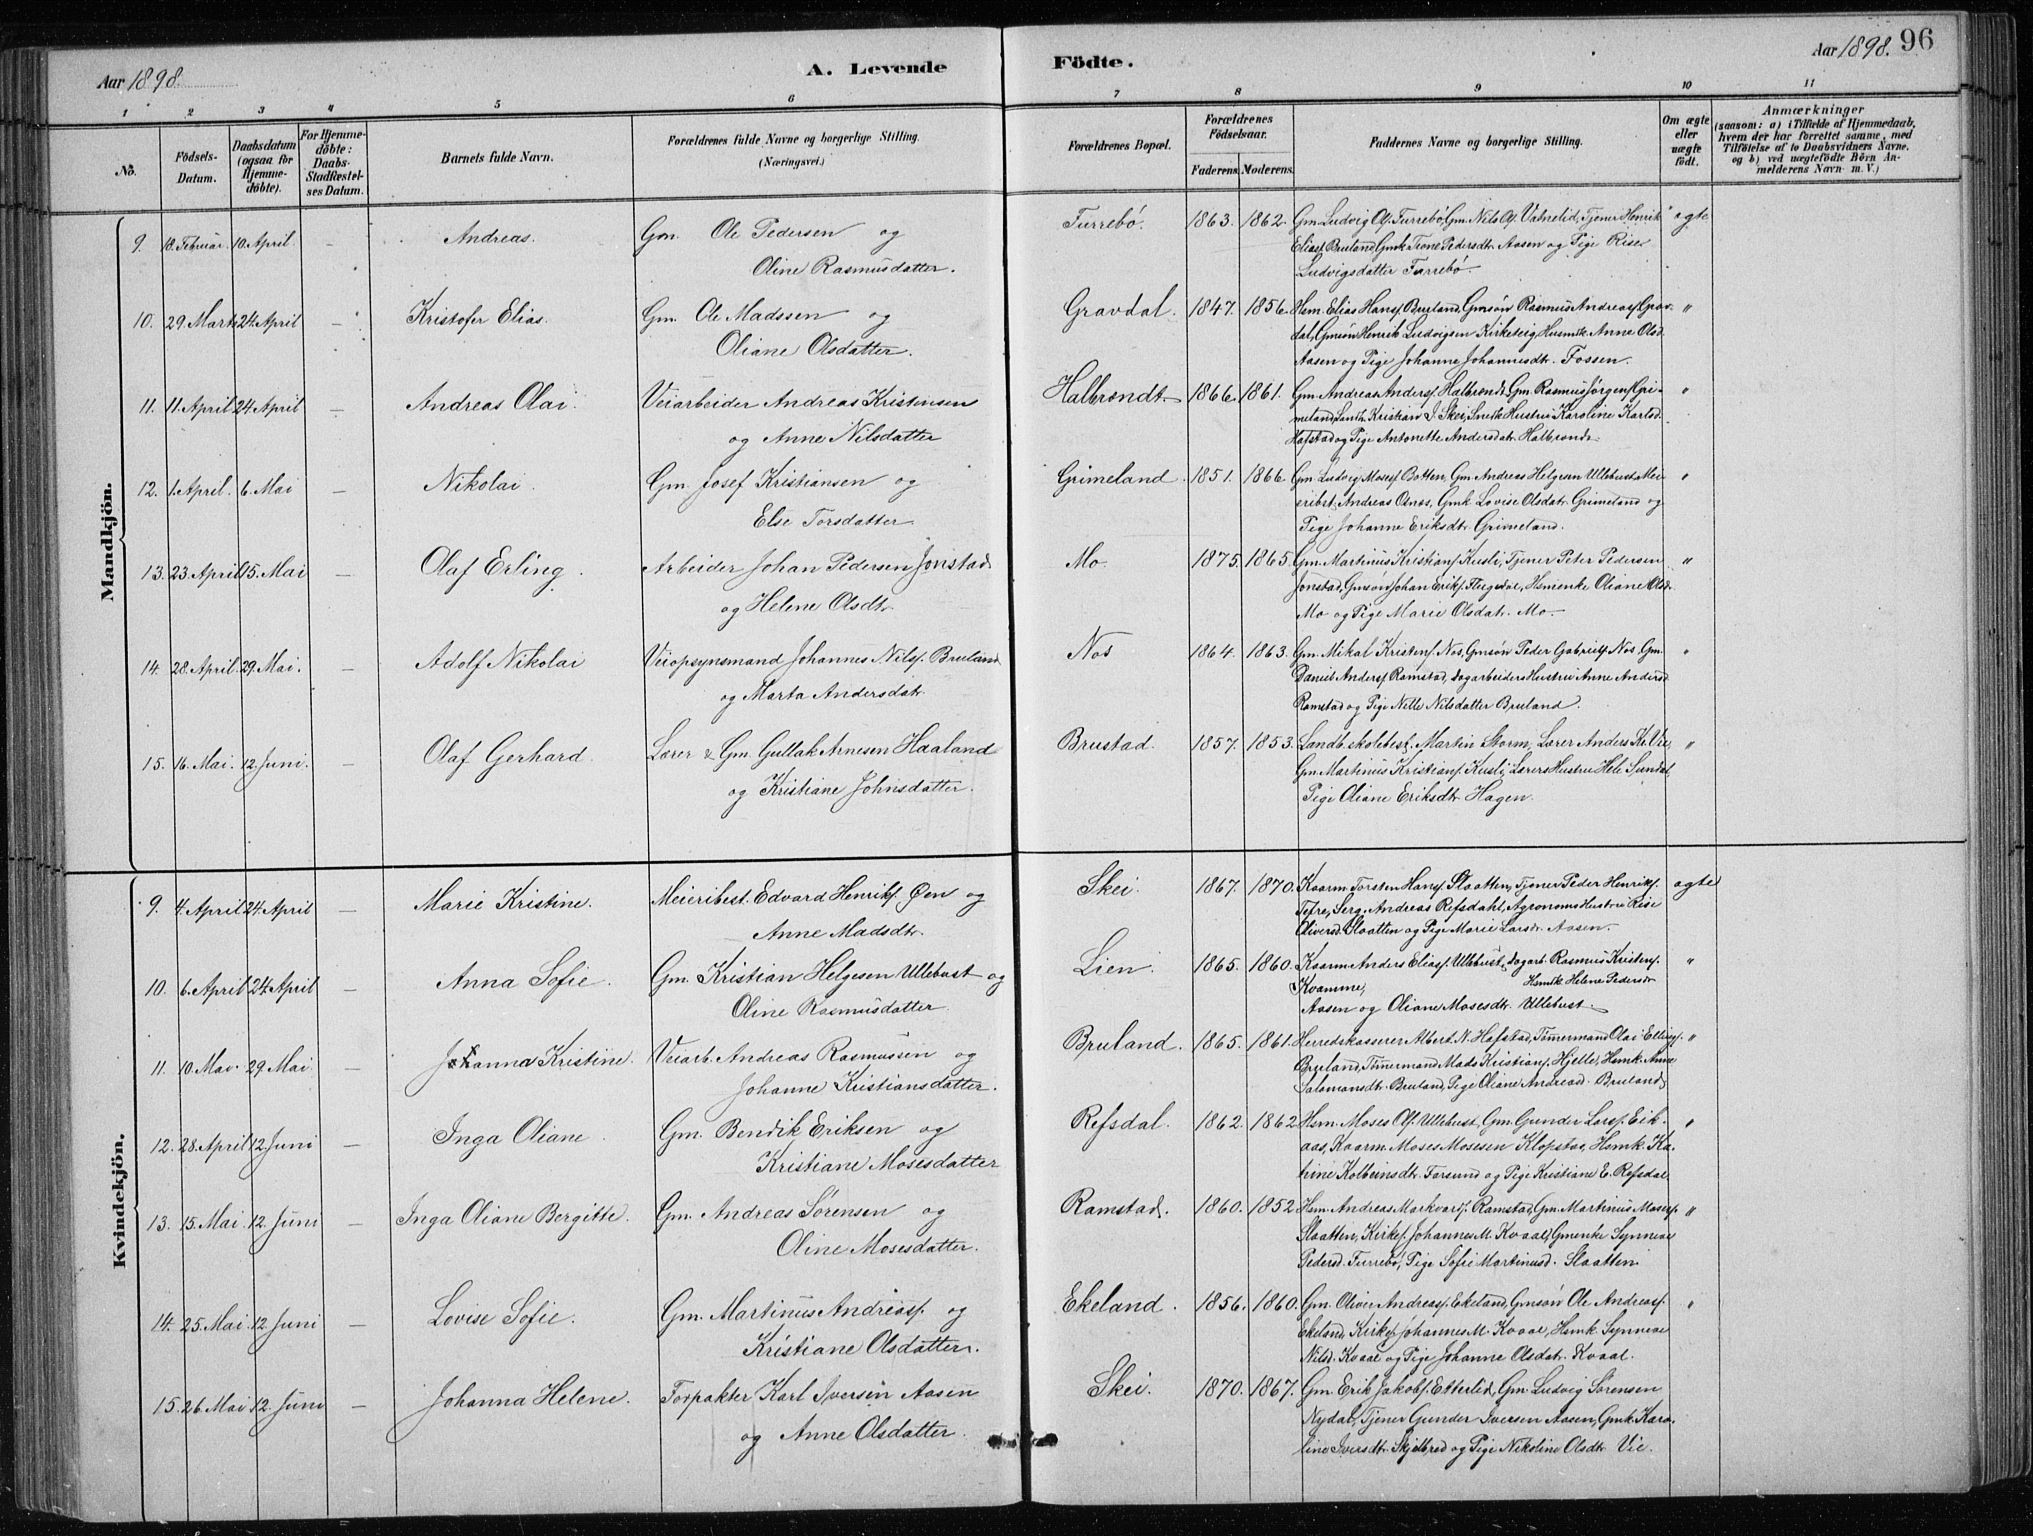 Aar 1898.
A. Levende
Födte.
Aar 1898. 96
1 2 3 4 5 6 7 8 9 10 11
No. Födsels-Datum. Daabsdatum (ogsaa for Hjemme-döbte). For Hjemme-döbte: Daabs-Stadfæstel-ses Datum. Barnets fulde Navn. Forældrenes fulde Navne og borgerlige Stilling. (Næringsvei.) Forældrenes Bopæl. Forældrenes Födselsaar. Faderens. Moderens. Faddernes Navne og borgerlige Stilling. Om ægte eller uægte födt. Anmærkninger (saasom: a) i Tilfælde af Hjemmedaab, hvem der har forrettet samme, med Tilföielse af to Daabsvidners Navne, og b) ved uægtefödte Börn An-melderens Navn m. V.)
Mandkjön.
9. 18. Februar. 10 April. — Andreas. Gm. Ole Pedersen og Furrebø. 1863. 1862. Gm. Ludvig Ols. Furrebø, Gm. Nils Ols. Vatnelid, Tjener Henrik ægte
Oline Rasmusdatter. Eliass. Bruland, Gmk. Trone Pedersdtr. Aasen og Pige Rise
Ludvigsdatter Furrebø.
10. 29 Marts 24 April — Kristofer Elias. Gm. Ole Madssen og Gravdal. 1847. 1856. Hsm. Elias Hanss. Bruland, Gmsøn Rasmus Andreass. Grav- "
Oliane Olsdatter. dal, Gmsøn Henrik Ludvigsen Kirketeig, Husmk. Anne Olsd.
Aasen og Pige Johanne Johannesdtr. Fossen.
11. 11 April 24 April — Andreas Olai. Veiarbeider Andreas Kristensen Halbrendt 1866. 1861. Gm. Andreas Anderss. Halbrendt, Gm. Rasmus Jørgens. Gri- "
og Anne Nilsdatter meland, Kristian J. Skei, Hustru Karoline Karlsd.
Hafstad og Pige Antonette Andersdatr. Halbrendt.
12. 1. April. 6. Mai — Nikolai. Gm. Josef Kristiansen og Grimeland. 1851. 1866. Gm. Ludvig Moses. Botten, Gm. Andreas Helgesen Ullebust, Mei- "
Else Torsdatter eribst. Andreas Osnes, Gmk Lovise Olsdatr. Grimeland og
Pige Johanne Eriksdtr. Grimeland.
13. 23. April 15. Mai — Olaf Erling. Arbeider Johan Pedersen Jonstad Mo. 1875. 1865. Gm. Martinus Kristians. Kusli, Tjener Peter Pedersen "
og Helene Olsdtr. Jonstad, Gmsøn Johan Eriks. Flugedal, Hsmenke Oliane Olsd.
Mo og Pige Marie Olsdatr. Mo.
14. 28. April. 29. Mai. — Adolf Nikolai Veiopsynsmand Johannes Nils. Bruland Nos 1864. 1863. Gm. Mikal Kristens. Nos, Gmsøn Peder Gabriels. Nos, Gm. "
og Marta Andersdatr. Daniel Anders. Ramstad, dagarbeiders Hustru Anne Andersd.
Ramstad og Pige Nille Nilsdatter Bruland.
15. 16. Mai. 12. Juni. — Olaf Gerhard. Lærer & Gm. Gullak Arnesen Haaland Brustad. 1857. 1853. Landb. skolebest. Martin Storm, Lærer Anders K. Vie, "
og Kristiane Johnsdatter. Gm. Martinus Kristians. Kusli, Lærers Hustru Hele Sundal,
Pige Oliane Eriksdtr. Hagen.
Kvindekjön.
9. 4. April 24. April — Marie Kristine. Meieribest. Edvard Henriks. Øen og Skei. 1867. 1870. Kaarm. Torsten Hans. Slaatten, Tjener Peder Henriks. ægte
Anne Madsdtr. Tefre, Serg. Andreas Refsdahl, Agronoms Hustru Rise
Oliversd. Slaatten og Pige Marie Larsdr. Aasen.
10. 6. April 24. April — Anna Sofie. Gm. Kristian Helgesen Ullebust og Lien. 1865. 1860. Kaarm Anders Elias. Ullebust, dagarb. Rasmus Kristens. "
Oline Rasmusdatter. Kvamme, Hsmtk. Helene Pedersdr.
Aasen og Oliane Mosesdtr. Ullebust.
11. 10. Mav. 29 Mai. — Johanna Kristine. Veiarb. Andreas Rasmussen og Bruland. 1865. 1861. Herredskasserer Albert N. Hafstad, Tømmermand Olai Ellings. "
Johanne Kristiansdatter. Bruland, Tømmermand Mads Kristians. Hjelle, Hsmk. Anne
Salamonsdtr. Bruland, Pige Oliane Andreasd. Bruland.
12. 28. April 12 Juni — Inga Oliane. Gm. Bendik Eriksen og Refsdal. 1862. 1862 Hsm. Moses Ols. Ullebust, Gm. Gunder Lases. Eik- "
Kristiane Mosesdatter aas, Kaarm. Moses Mosesen Klopstad, Hsmk. Ka-
trine Kolbeinsdtr. Førsund og Pige Kristiane E. Refsdal.
13. 15. Mai. 12. Juni — Inga Oliane Bergitte. Gm. Andreas Sørensen og Ramstad. 1860. 1852 Hsm. Andreas Markvars. Ramstad, Gm. Martinus Moses. "
Oline Mosesdatter. Slaatten, Kirkes. Johannes M. Kvaal, Gmenke Synneve
Pedersd. Furrebø, Pige Sofie Martinusd. Slaatten.
14. 25. Mai. 12. Juni — Lovise Sofie. Gm. Martinus Andreass. og Ekeland. 1856. 1860. Gm. Oliver Andreass. Ekeland, Gmsøn Ole Andreass. "
Kristiane Olsdatter. Ekeland, Kirkes. Johannes M. Kvaal, Hsmk. Synneve
Nilsd. Kvaal og Pige Johanne Olsdatr. Kvaal.
15. 26. Mai 12. Juni — Johanna Helene. Forpakter Karl Iversen Aasen Skei. 1870. 1867. Gm. Erik Jakobs. Etterlid, Gm. Ludvig Sørensen
og Anne Olsdatter. Nydal, Tjener Gunder Iversen Aasen, Gmk. Karo-
line Iversdtr. Skjelbred og Pige Nikoline Olsdtr. Vie.